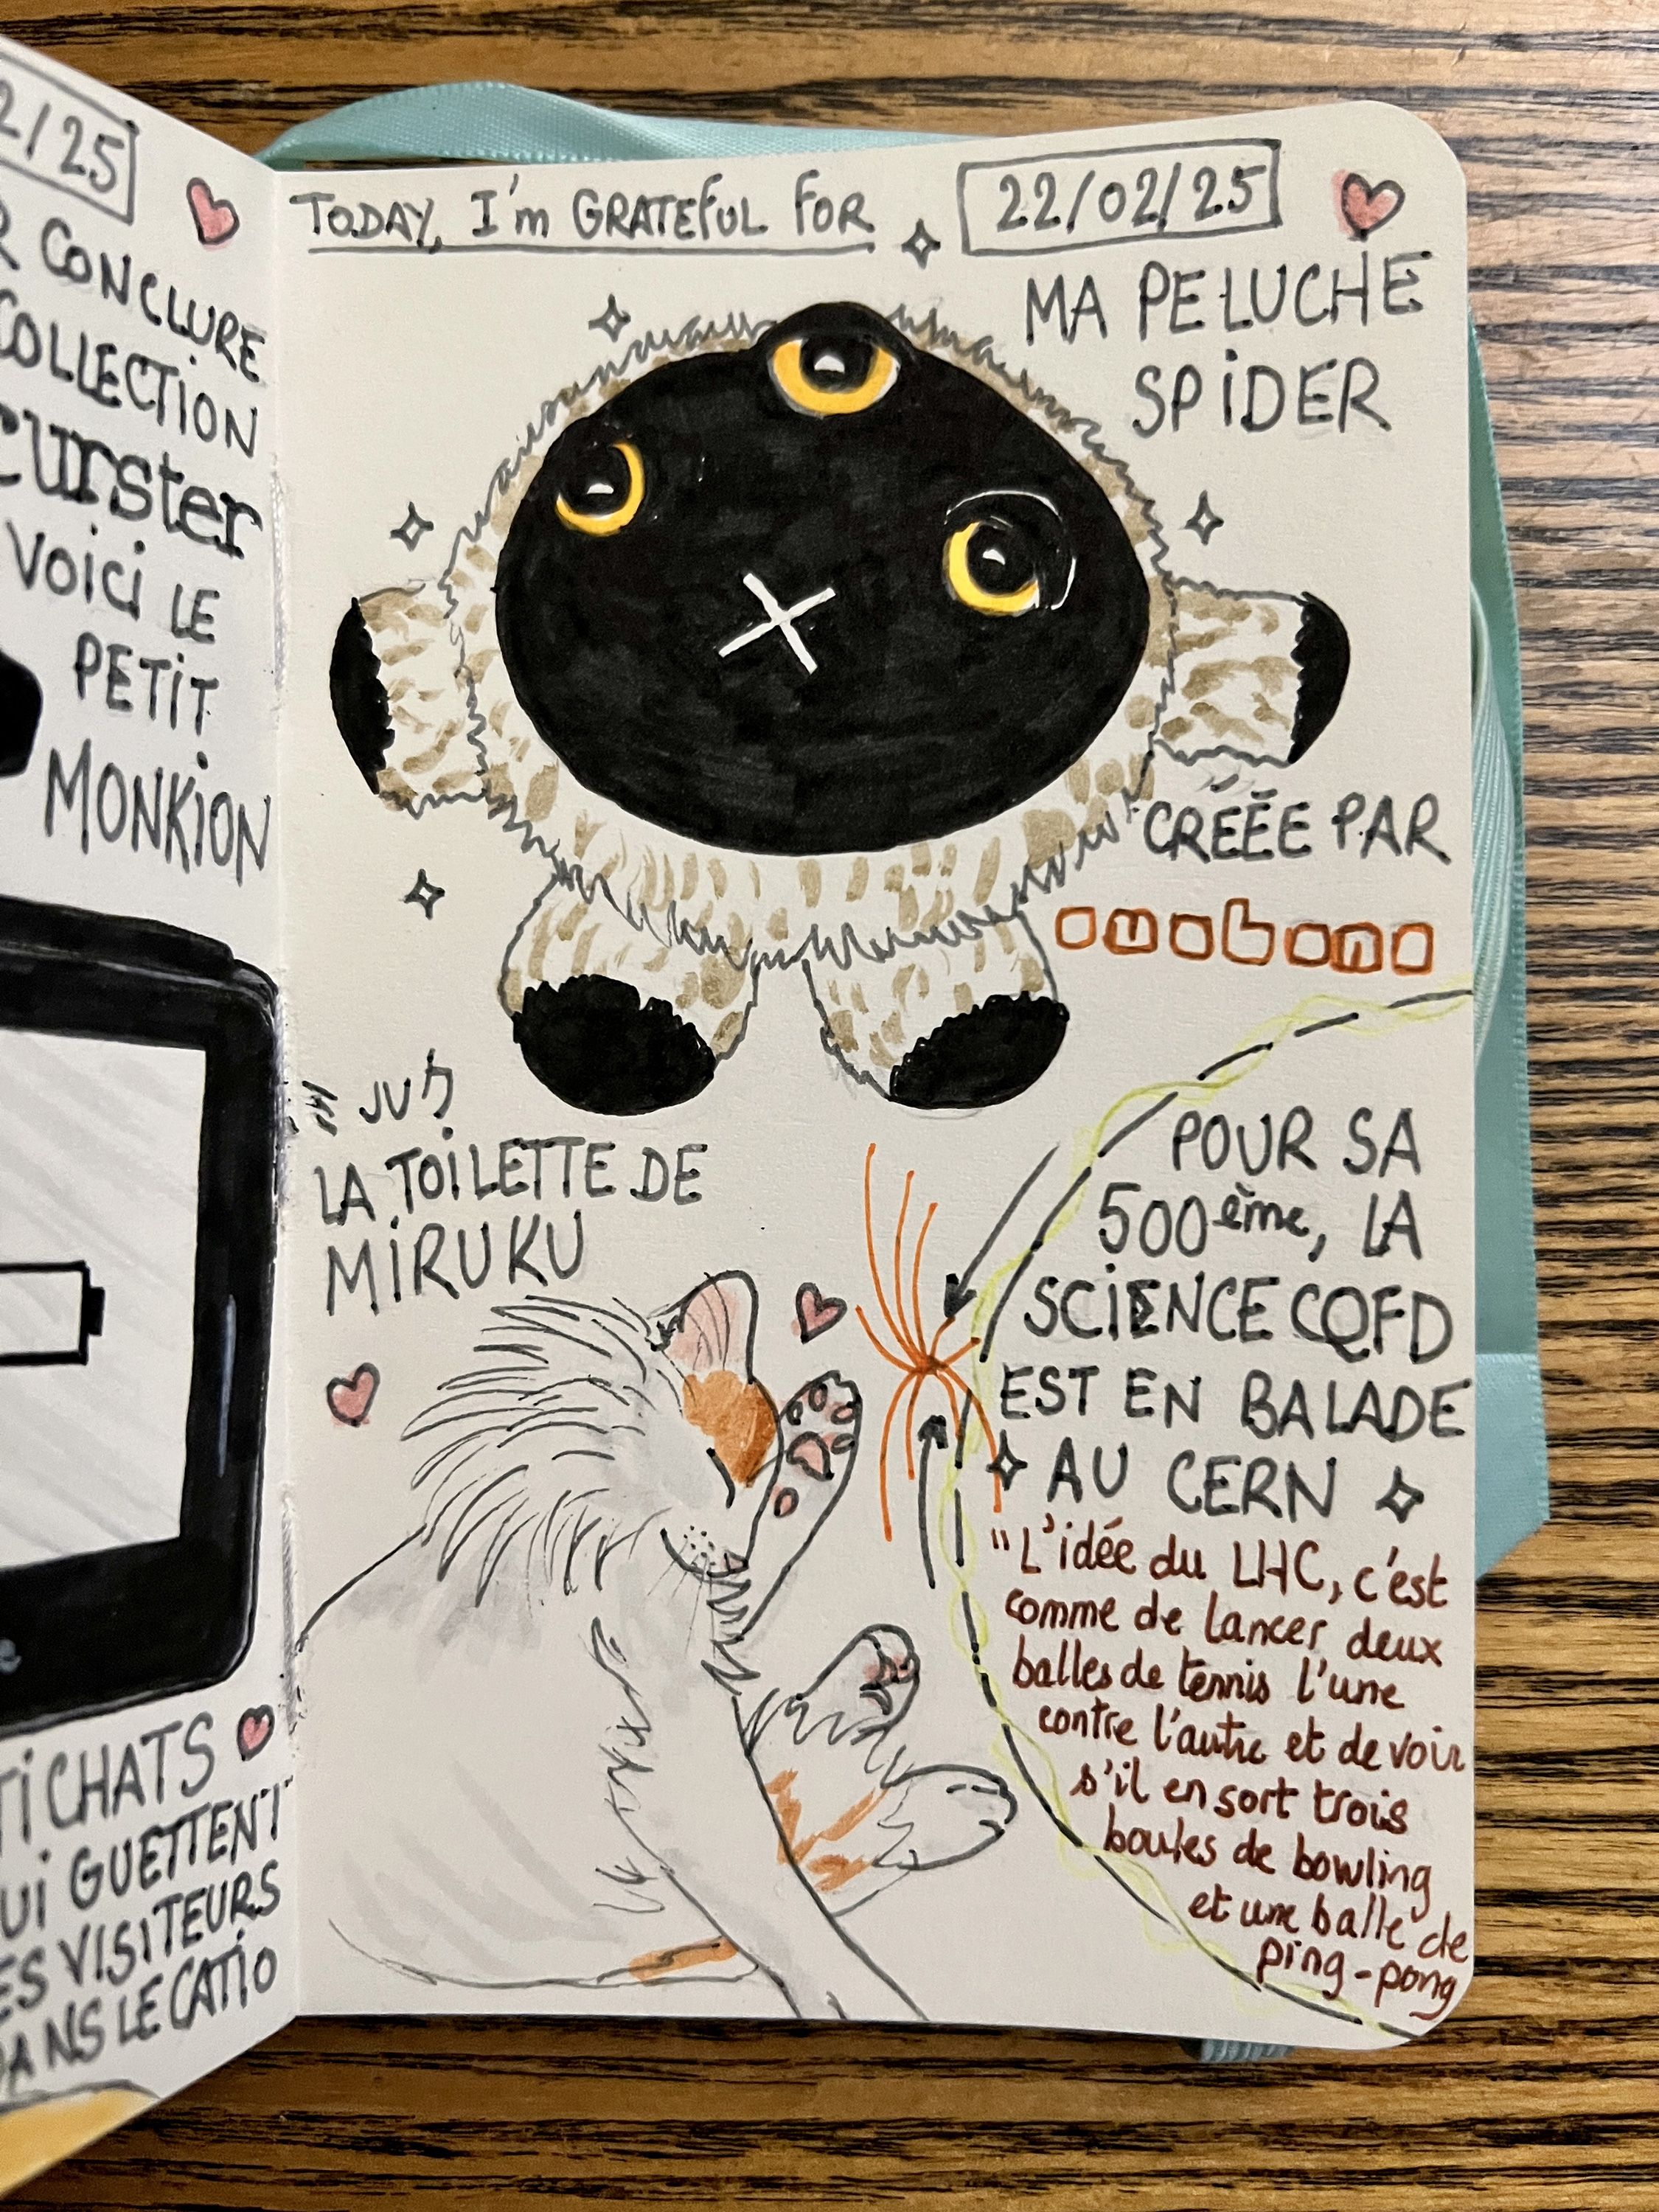 2/25
CONCLURE
COLLECTION
curster
VOICI LE
PETIT
MONKION
CHATS
GUETTENT
VISITEURS
DANS LE CATIO
TODAY, I'm GRATEFUL FOR
22/02/25
MA PELUCHE
SPIDER
CRÉÉE PAR
omobono
LA TOILETTE DE
MIRUKU
POUR SA
500ème, LA
SCIENCE CQFD
EST EN BALADE
AU CERN
"L'idée du LHC, c'est
comme de lancer deux
balles de tennis l'une
contre l'autre et de voir
s'il en sort trois
boules de bowling
et une balle de
ping-pong